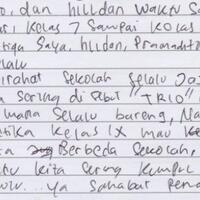 o, dan hilldan waktu S
ari kelas 7 sampai kelas
tiga saya, hildan, Pramadit
elalu
irahat sekolah selalu Ja
a sering di sebut "TRIO"
mana selalu bareng, Na
etika kelas IX mau
a Berbeda sekolah,
tu kita sering kumpul
ulu... ya sahabat